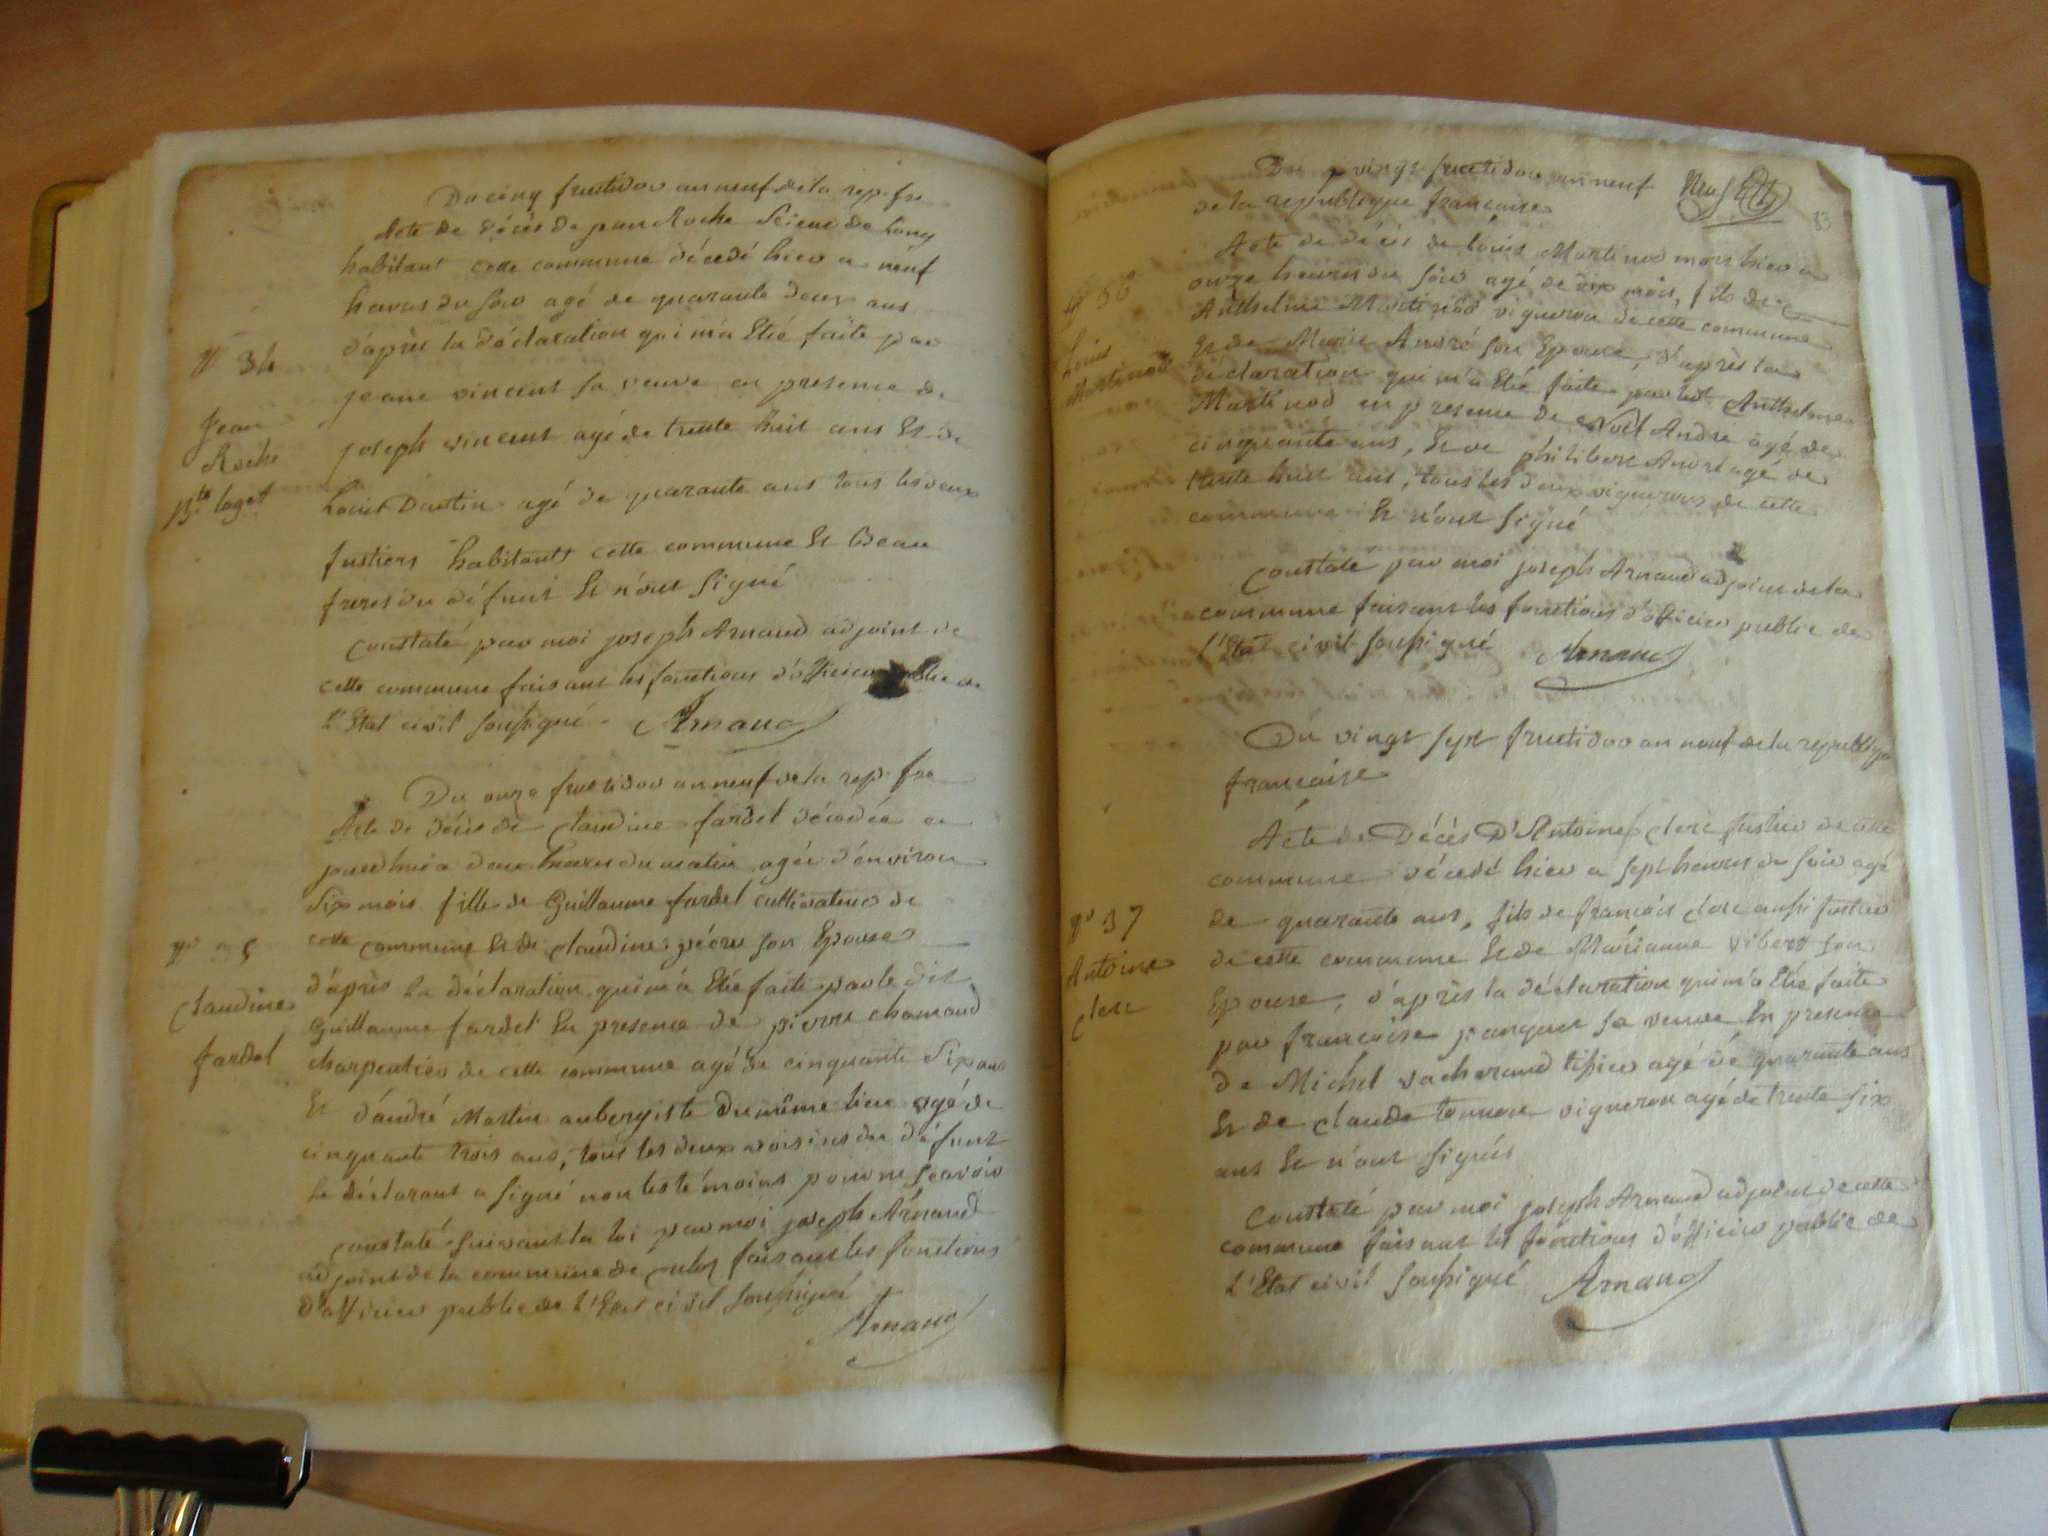 Du cinq fructidor an neuf de la rep. fre
Acte de décès de jean Roche Scieur de Long
habitant cette commune décédé hier a neuf
heures du soir agé de quarante deux ans
d'après la déclaration qui m'a Eté faite par
N° 34
jeane vincent sa veuve en presence de
Jean
Roche
joseph vincent agé de trente huit ans Et de
Louis Dantin agé de quarante ans tous les deux
fustiers habitants cette commune Et Beau
freres du défunt Et n'ont Signé
Constaté par moi joseph Arnaud adjoint de
cette commune faisant les fonctions d'officier public de
L'Etat civil soussigné. Arnaud
Du onze fructidor an neuf de la rep. fre
Acte de décès de Claudine fardel décédée
jourdhui a deux heures du matin agée d'environ
Six mois fille de Guillaume fardel cultivateur de
N° 35
cette commune Et de Claudine son Epouse
d'après La déclaration qui m'a Eté faite par le dit
Claudine
Guillaume fardel En presence de pierre chamaud
fardel
charpentier de cette commune agé de cinquante Six ans
Et d'andré Martin aubergiste du même lieu agé de
cinquante trois ans, tous les deux voisins du défunt
Le déclarant a signé non les témoins pour ne scavoir
Constaté suivant la loi par moi joseph Arnaud
adjoint de la commune de culoz faisant les fonctions
d'officier public de L'Etat civil soussigné
Arnaud
Du vingt fructidor an neuf
de la republique française
83
Acte de décès de Louis Martinod mort hier a
onze heures du soir agé de dix mois, fils de
Anthelme Martinod vigneron de cette commune
Et de Marie André son Epouse, d'après la
Louis
Martinod
déclaration qui m'a Eté faite par ledt Anthelme
Martinod en presence de Noël André agé de
cinquante ans, Et de philibert André agé de
trente huit ans, tous les deux vignerons de cette
commune Et n'ont signé
Constaté par moi joseph Arnaud adjoint de la
commune faisant les fonctions d'officier public de
L'Etat civil soussigné Arnaud
Du vingt sept fructidor an neuf de la republique
francaise
Acte de Décès D'Antoine Clerc fustier de cette
commune décédé hier a sept heures du soir agé
de quarante ans, fils de francois Clerc aussi fustier
N° 37
de cette commune Et de Marianne vibert son
Antoine
Clerc
Epouse, d'après la déclaration qui m'a Eté faite
par francoise sa veuve En presence
de Michel vacherand tissier agé de quarante ans
Et de Claude vigneron agé de trente six
ans Et n'ont signés
Constaté par moi joseph Arnaud adjoint de cette
commune faisant les fonctions d'officier public de
L'Etat civil soussigné Arnaud